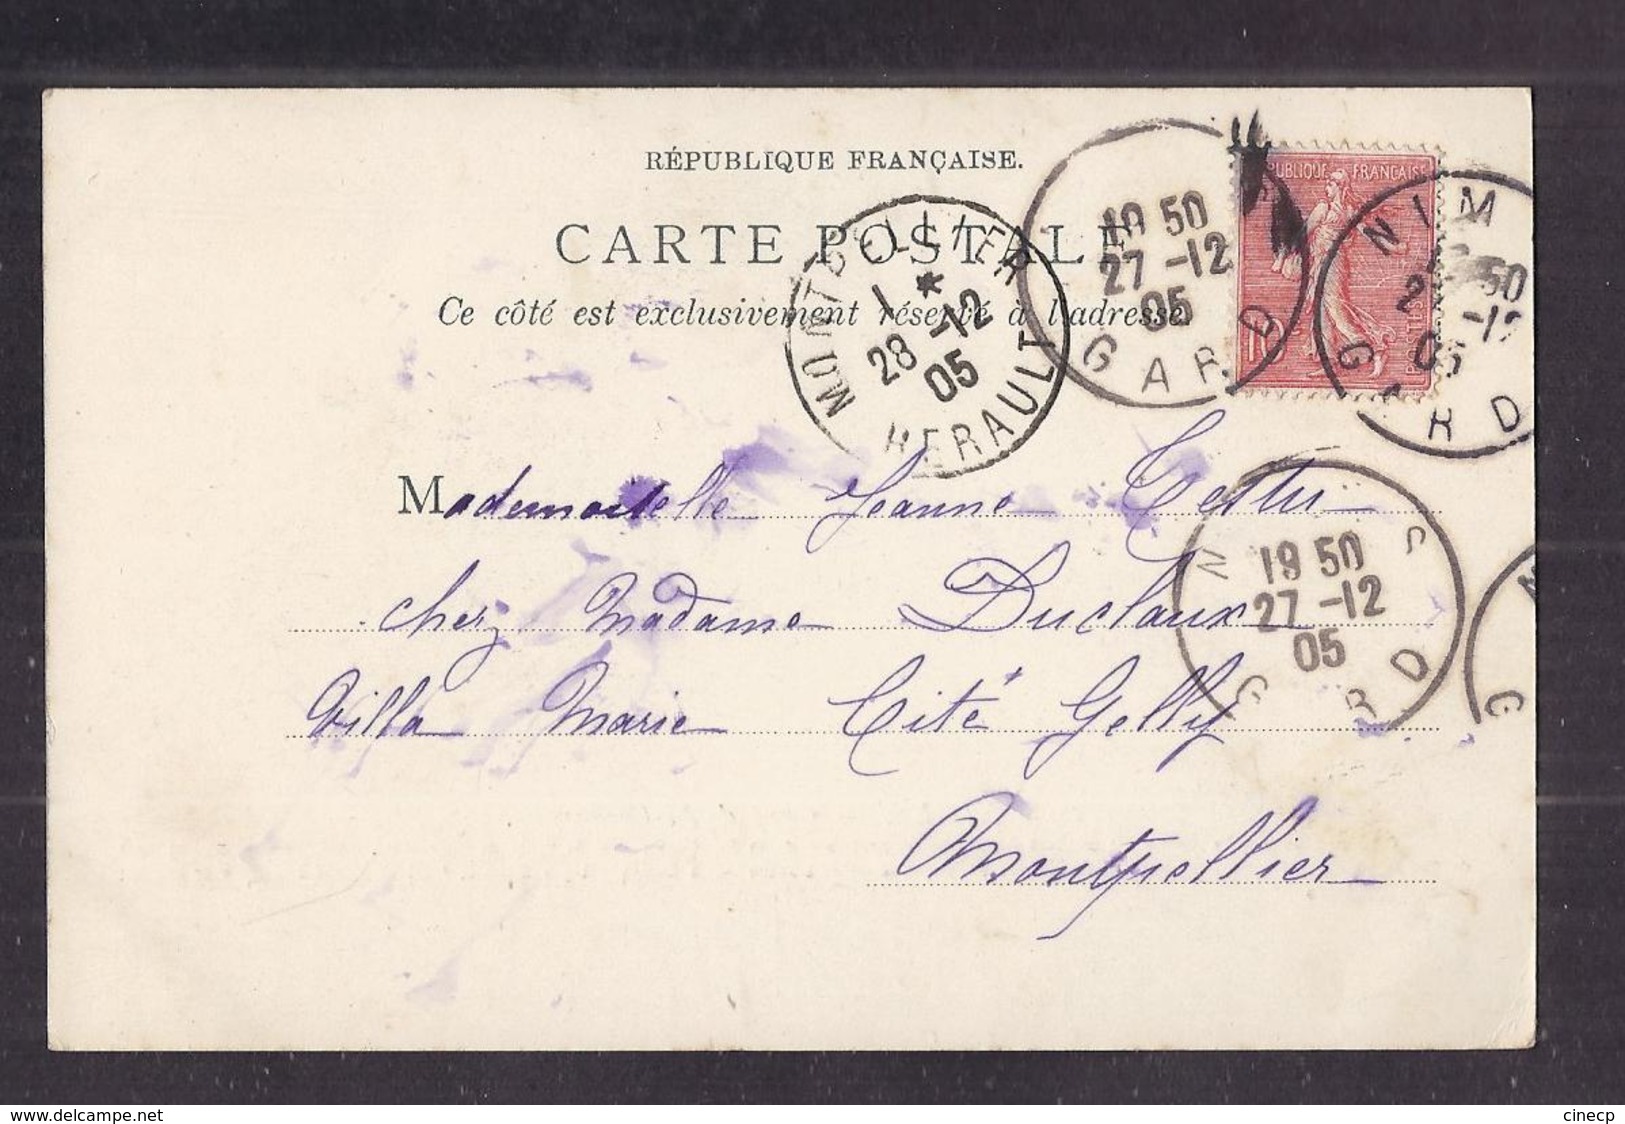 RÉPUBLIQUE FRANÇAISE.
CARTE POSTALE
Ce côté est exclusivement réservé à l'adresse
MONTPELLIER
1 *
28 -12
05
HERAULT
19 50
27 -12
05
GARD
RÉPUBLIQUE FRANÇAISE
POSTES
10
NIM
50
-12
05
GARD
Mademoiselle Jeanne Testu
chez Madame Duclaux
Villa Marie Cité Gelly
Montpellier
N S
19 50
27 -12
05
G RD
N
G
www.delcampe.net
cinecp